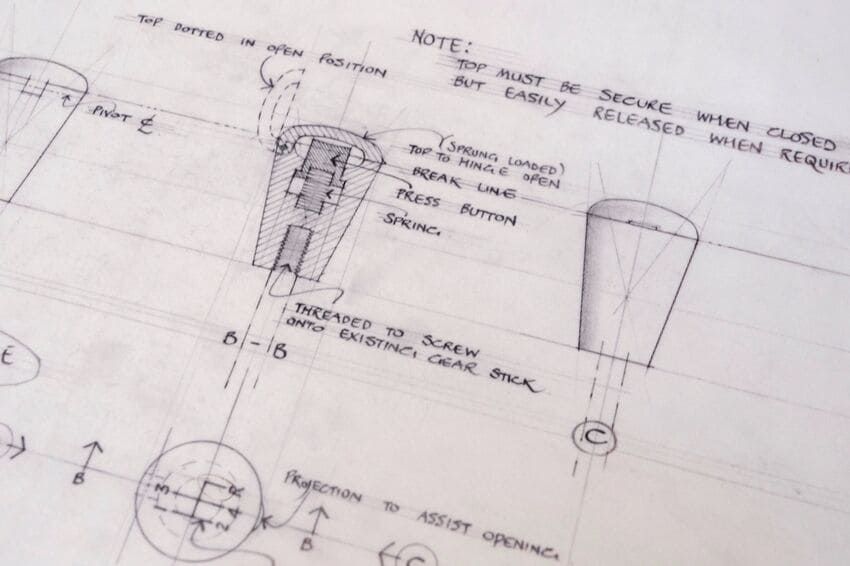 TOP DOTTED IN OPEN POSITION
NOTE:
TOP MUST BE SECURE WHEN CLOSED
BUT EASILY RELEASED WHEN
PIVOT ℄
(SPRUNG LOADED)
TOP TO HINGE OPEN
BREAK LINE
PRESS BUTTON
SPRING
THREADED TO SCREW
ONTO EXISTING GEAR STICK
B - B
C
E
B
1 3 R
2 4
PROJECTION TO ASSIST OPENING
B
C